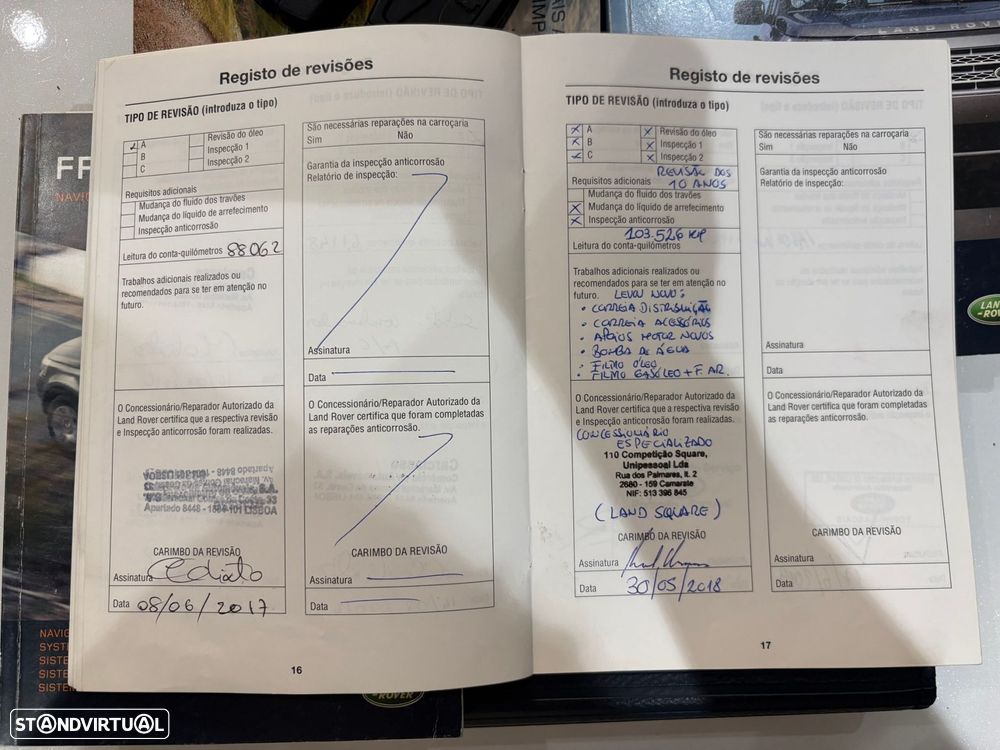 LAND ROVER
FR
NAVIG
Registo de revisões
TIPO DE REVISÃO (introduza o tipo)
A
B
C
Revisão do óleo
Inspecção 1
Inspecção 2
Requisitos adicionais
Mudança do fluido dos travões
Mudança do líquido de arrefecimento
Inspecção anticorrosão
Leitura do conta-quilómetros 88062
Trabalhos adicionais realizados ou
recomendados para se ter em atenção no
futuro.
O Concessionário/Reparador Autorizado da
Land Rover certifica que a respectiva revisão
e Inspecção anticorrosão foram realizadas.
Apartado 8448 - 1804-101 LISBOA
CARIMBO DA REVISÃO
Assinatura
Data 08/06/2017
São necessárias reparações na carroçaria
Sim Não
Garantia da inspecção anticorrosão
Relatório de inspecção:
Assinatura
Data
O Concessionário/Reparador Autorizado da
Land Rover certifica que foram completadas
as reparações anticorrosão.
CARIMBO DA REVISÃO
Assinatura
Data
16
Registo de revisões
TIPO DE REVISÃO (introduza o tipo)
A
B
C
Revisão do óleo
Inspecção 1
Inspecção 2
REVISÃO DOS
Requisitos adicionais 10 ANOS
Mudança do fluido dos travões
Mudança do líquido de arrefecimento
Inspecção anticorrosão
103.526 KM
Leitura do conta-quilómetros
Trabalhos adicionais realizados ou
recomendados para se ter em atenção no
futuro. LEVOU NOVO:
• CORREIA DISTRIBUIÇÃO
• CORREIA ACESSÓRIOS
• APOIOS MOTOR NOVOS
• BOMBA DE ÁGUA
• FILTRO ÓLEO
• FILTRO GASÓLEO + F. AR.
O Concessionário/Reparador Autorizado da
Land Rover certifica que a respectiva revisão
e Inspecção anticorrosão foram realizadas.
CONCESSIONÁRIO
ESPECIALIZADO
110 Competição Square,
Unipessoal Lda
Rua dos Palmares, lt. 2
2680 - 159 Camarate
NIF: 513 396 845
(LAND SQUARE)
CARIMBO DA REVISÃO
Assinatura
Data 30/05/2018
São necessárias reparações na carroçaria
Sim Não
Garantia da inspecção anticorrosão
Relatório de inspecção:
Assinatura
Data
O Concessionário/Reparador Autorizado da
Land Rover certifica que foram completadas
as reparações anticorrosão.
CARIMBO DA REVISÃO
Assinatura
Data
17
LAND
-ROVER
NAVIG
SYST
SISTE
SISTE
SISTE
ROVER
STANDVIRTUAL